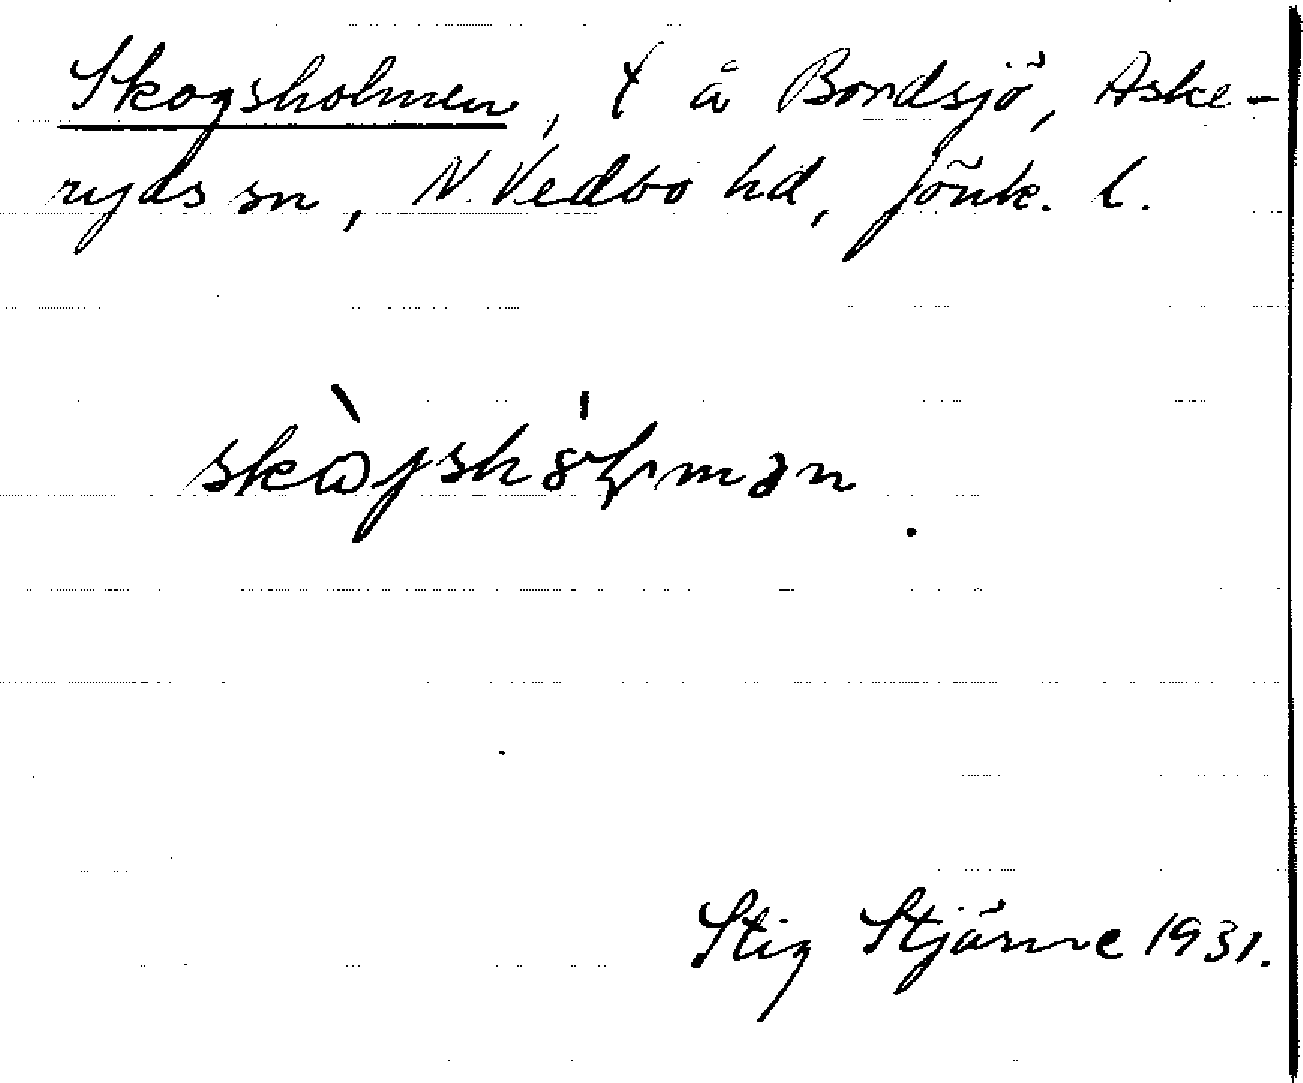 Skogsholmen, t å Bordsjö, Aske-
ryds sn, N. Vedbo hd, Jönk. l.
Stig Stjärne 1931.